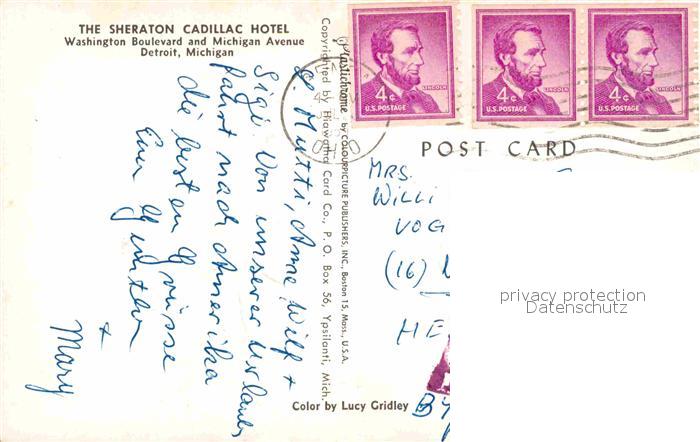 THE SHERATON CADILLAC HOTEL
Washington Boulevard and Michigan Avenue
Detroit, Michigan
L. Mutti, Anne, Wilf +
Sigi. Von unserer Urlaubs
fahrt nach Amerika
die besten Grüsse
Euer Günter
+
Mary
Plastichrome by COLOURPICTURE PUBLISHERS, INC., Boston 15, Mass., U.S.A.
Copyrighted by Hiawatha Card Co., P. O. Box 56, Ypsilanti, Mich.
Color by Lucy Gridley
4¢
LINCOLN
U.S. POSTAGE
4¢
LINCOLN
U.S. POSTAGE
4¢
LINCOLN
U.S. POSTAGE
POST CARD
MRS.
WILLI
VOG
(16)
HE
privacy protection
Datenschutz